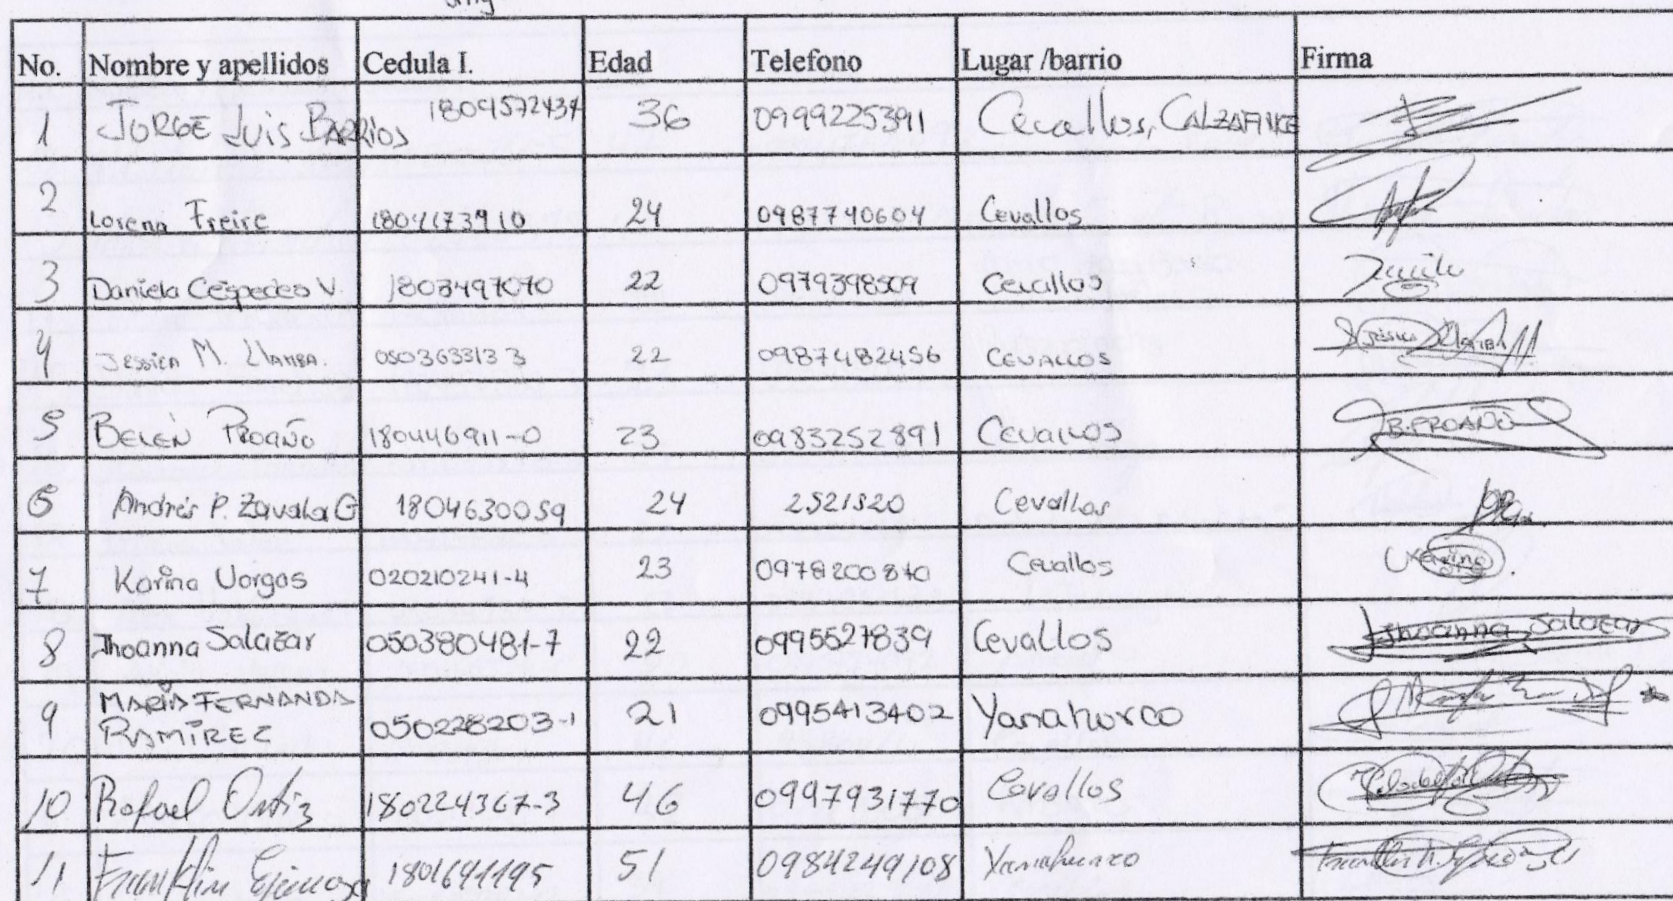 No. Nombre y apellidos Cedula I. Edad Telefono Lugar /barrio Firma
1 JORGE LUIS BARRIOS 1804572434 36 0999225391 Cevallos,
2 Lorena Freire 1804173910 24 0987740604 Cevallos
3 Daniela Céspedes V. 1803497070 22 0979398509 Cevallos
4 JESSICA M. LLAMBA. 0503633133 22 0987482456 CEVALLOS
5 BELÉN PROAÑO 180446911-0 23 0983252891 CEVALLOS B.PROAÑO
6 Andrés P. Zavala G 1804630059 24 2521520 Cevallos
7 Karina Vargas 020210241-4 23 0978200840 Cevallos
8 Jhoanna Salazar 050380481-7 22 0995527839 Cevallos Jhoanna Salazar
9 MARÍA FERNANDA
RAMÍREZ 050228203-1 21 0995413402 Yanahurco
10 Rafael Ortiz 180224367-3 46 0997931770 Cevallos
11 Franklin Espinoza 1801691195 51 0984249108 Yanahurco